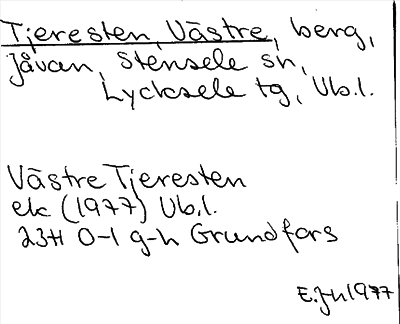 Tjeresten, Västre, berg,
Jåvan, Stensele sn,
Lycksele tg, Vb.l.
Västre Tjeresten
ek (1977) Vb.l.
23H 0-1 g-h Grundfors
E.Jn 1977